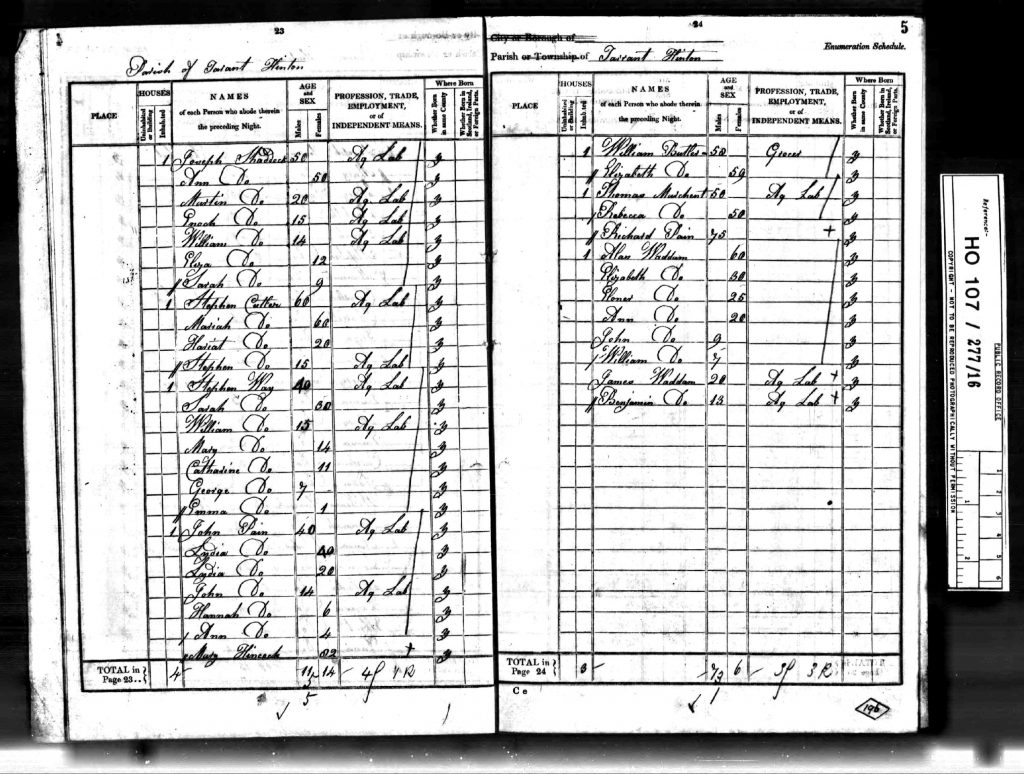 23
Parish of Tarrant Hinton
PLACE
HOUSES
Uninhabited or Building
Inhabited
NAMES
of each Person who abode therein
the preceding Night.
AGE and SEX
Males
Females
PROFESSION, TRADE, EMPLOYMENT, or of INDEPENDENT MEANS.
Where Born
Whether Born in same County
Whether Born in Scotland, Ireland, or Foreign Parts.
1 Joseph 50 Ag Lab y
Ann Do 50 y
Martin Do 20 Ag Lab y
Enoch Do 15 Ag Lab y
William Do 14 Ag Lab y
Eliza Do 12 y
Sarah Do 9 y
1 Stephen Cutler 60 Ag Lab y
Mariah Do 60 y
Hariat Do 20 y
Stephen Do 15 Ag Lab y
1 Stephen Way 40 Ag Lab y
Sarah Do 30 y
William Do 15 Ag Lab y
Mary Do 14 y
Catharine Do 11 y
George Do 7 y
Emma Do 1 y
1 John Pain 40 Ag Lab y
Lydia Do 40 y
Lydia Do 20 y
John Do 14 Ag Lab y
Hannah Do 6 y
Ann Do 4 y
Mary Hincock 82 + y
TOTAL in Page 23.. 4 11 14
5
24
5
City or Borough of
Enumeration Schedule.
Parish or Township of Tarrant Hinton
PLACE
HOUSES
Uninhabited or Building
Inhabited
NAMES
of each Person who abode therein
the preceding Night.
AGE and SEX
Males
Females
PROFESSION, TRADE, EMPLOYMENT, or of INDEPENDENT MEANS.
Where Born
Whether Born in same County
Whether Born in Scotland, Ireland, or Foreign Parts.
1 William Butler 50 Grocer y
Elizabeth Do 59 y
1 Thomas Marchent 50 Ag Lab y
Rebecca Do 50 y
Richard Pain 75 + y
1 Waddum 60 y
Elizabeth Do 30 y
Do 25 y
Ann Do 20 y
John Do 9 y
William Do 7 y
James Waddam 20 Ag Lab + y
Benjamin Do 13 Ag Lab + y
TOTAL in Page 24 3 7 6
1
C e
196
Reference:-
HO 107 / 277/16
PUBLIC RECORD OFFICE
COPYRIGHT - NOT TO BE REPRODUCED PHOTOGRAPHICALLY WITHOUT PERMISSION